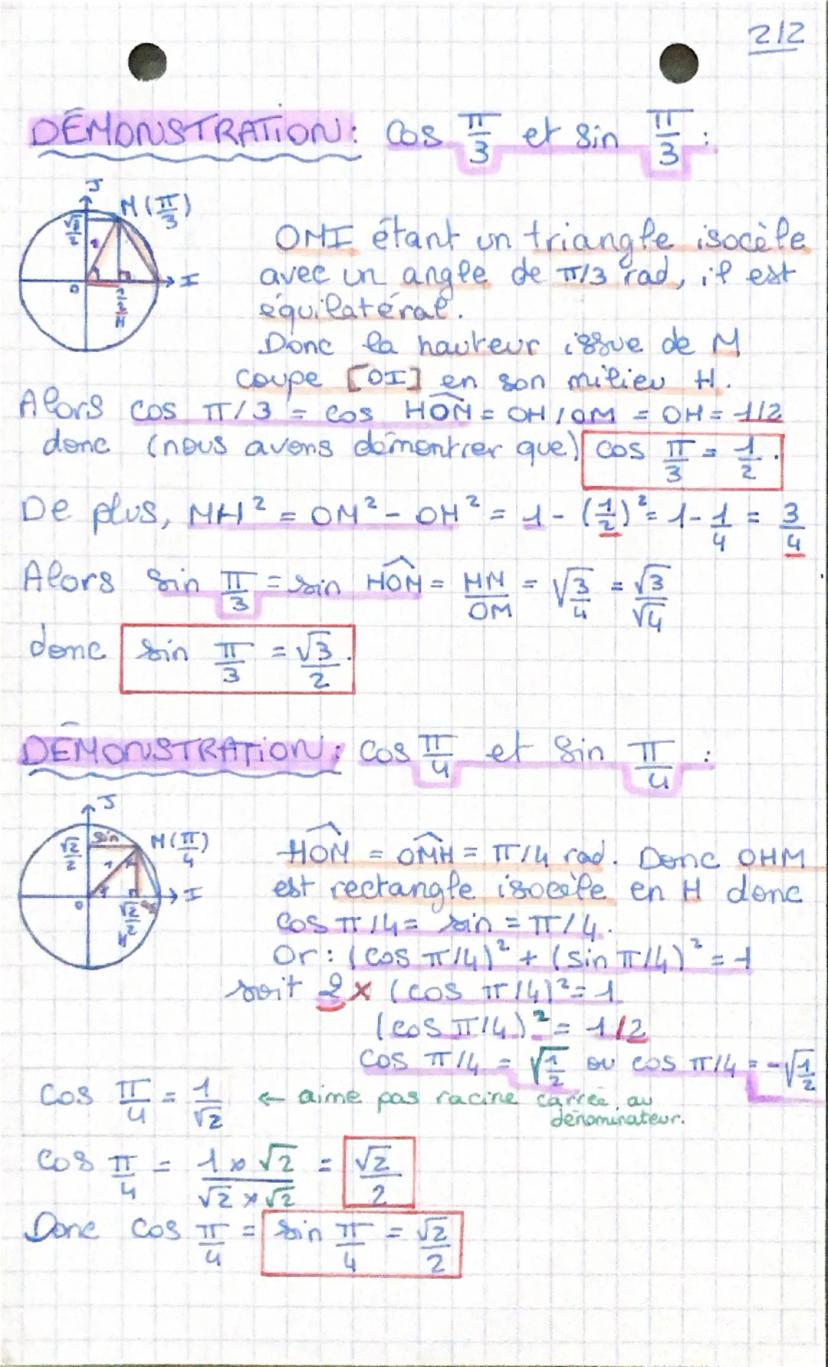 2/2
DÉMONSTRATION: cos π/3 et sin π/3 :
J
M(π/3)
√3/2
1
O
I
1/2
H
OMI étant un triangle isocèle
avec un angle de π/3 rad, il est
équilatéral.
Donc la hauteur issue de M
coupe [OI] en son milieu H.
Alors cos π/3 = cos HOM = OH/OM = OH = 1/2
donc (nous avons démontrer que) cos π/3 = 1/2.
De plus, MH² = OM² - OH² = 1 - (1/2)² = 1 - 1/4 = 3/4
Alors sin π/3 = sin HOM = HM/OM = √3/4 = √3/√4
donc sin π/3 = √3/2.
DÉMONSTRATION: cos π/4 et sin π/4 :
J
sin
M(π/4)
√2/2
1
O
I
√2/2
cos
H
HOM = OMH = π/4 rad. Donc OHM
est rectangle isocèle en H donc
cos π/4 = sin = π/4.
Or : (cos π/4)² + (sin π/4)² = 1
soit 2 × (cos π/4)² = 1
(cos π/4)² = 1/2
cos π/4 = √1/2 ou cos π/4 = -√1/2
cos π/4 = 1/√2 ← aime pas racine carrée au
dénominateur.
cos π/4 = 1 × √2/√2 × √2 = √2/2
Donc cos π/4 = sin π/4 = √2/2